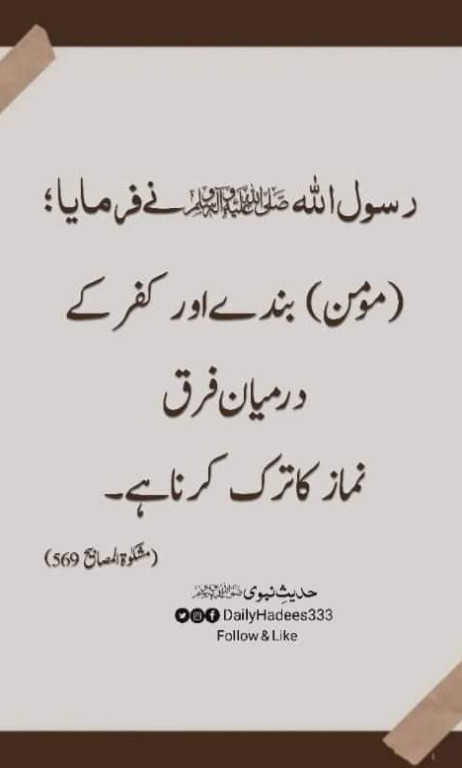 رسول اللہ صلی اللہ علیہ وآلہ وسلم نے فرمایا؛
(مؤمن) بندے اور کفر کے
درمیان فرق
نماز کا ترک کرنا ہے۔
(مشکوٰۃ المصابیح 569)
حدیثِ نبوی ﷺ
DailyHadees333
Follow & Like